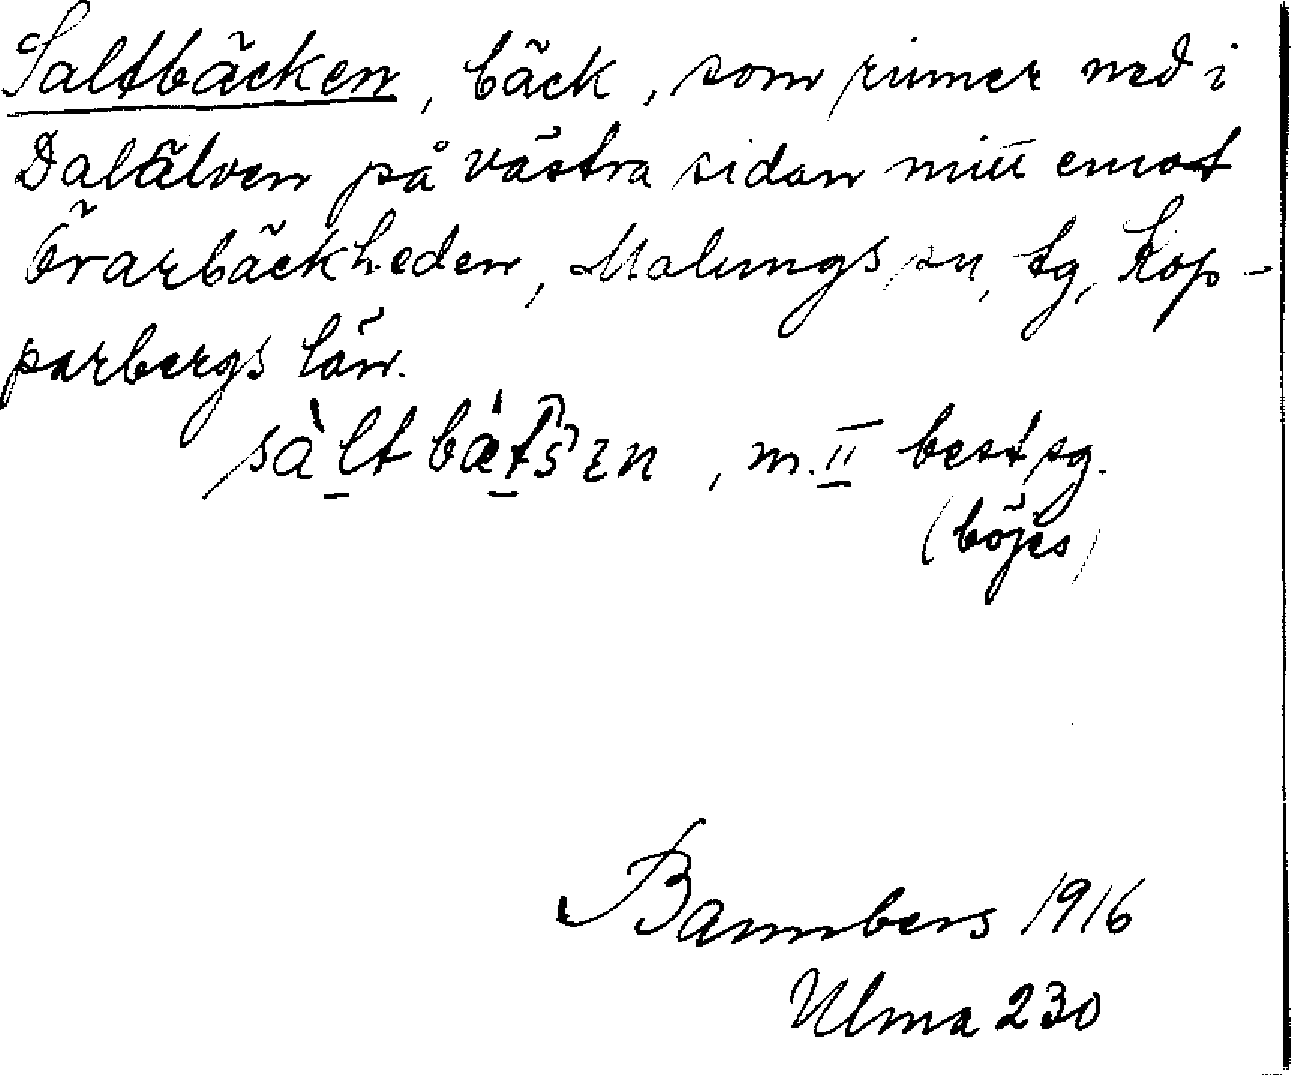 Saltbäcken, bäck, som rinner ned i
Dalälven på västra sidan mitt emot
Örarbäckheden, Malungs sn, tg, Kop-
parbergs län.
m. II best sg.
(böjes)
Bannbers 1916
Ulma 230